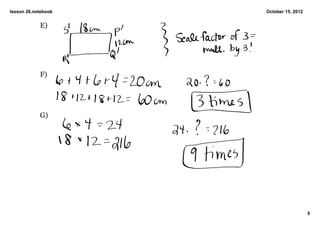 lesson 26.notebook
October 15, 2012
E)
S' 18cm P'
12cm
R' Q'
Scale factor of 3 =
mult. by 3!
F)
6+4+6+4=20cm 20·?=60
18+12+18+12= 60cm 3 times
G)
6×4=24 24·?=216
18×12=216 9 times
5